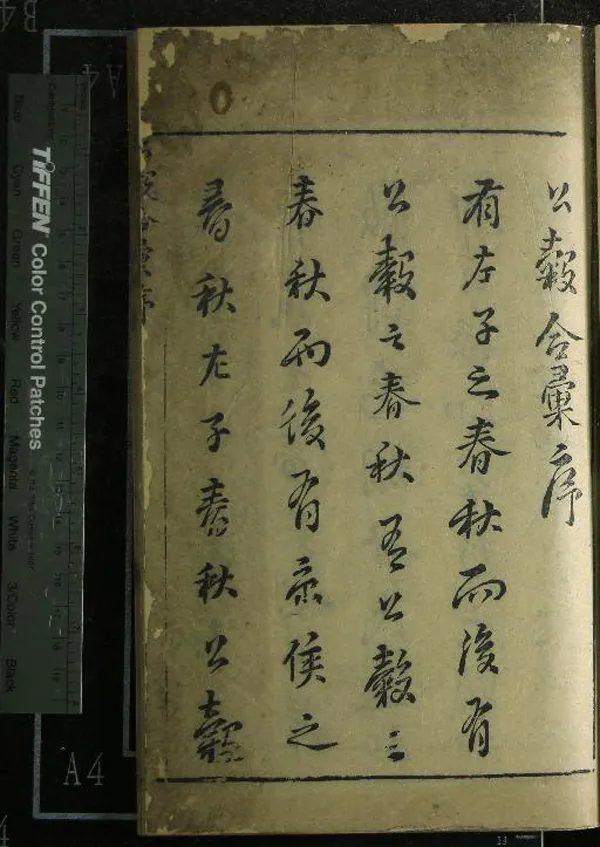 公穀合彙序
有左子之春秋而後有
公穀之春秋有公穀之
春秋而後有康侯之
春秋左子春秋公穀
TIFFEN Color Control Patches
Blue Cyan Green Yellow Red Magenta White 3/Color Black
A4
A4
B